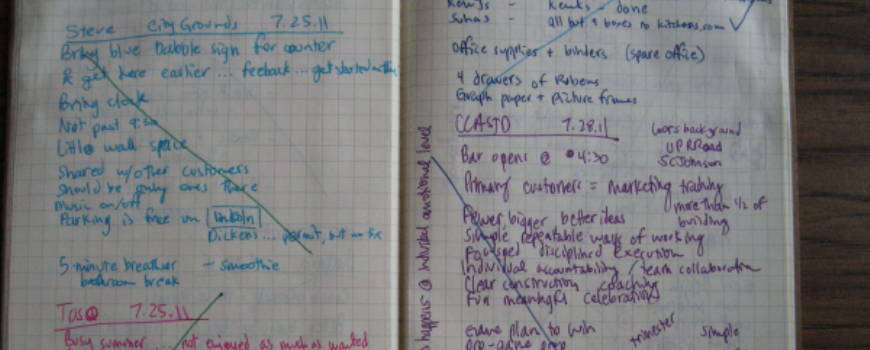 Steve City Grounds 7.25.11
Bring blue Dabble sign for counter
& get here earlier ... feeback ... get started
Bring clock
Not past 9:30
Little wall space
Shared w/other customers
should be only ones there
music on/off
Parking is free on Lincoln
Dickens ... permit, but no fix
5-minute breather → smoothie
bathroom break
7.25.11
Busy summer ... not enjoyed as much as wanted
done
all but 9 boxes to kitchens.com
office supplies + binders (spare office)
4 drawers of
Graph paper + picture frames
CCASTD 7.28.11
background
UP RRoad
SCJohnson
Bar opens @ 4:30
Primary customers = marketing training
more than 1/2 of
building
Fewer bigger better ideas
Simple repeatable ways of working
Focused disciplined execution
Individual accountability / team collaboration
Clear construction coaching
Fun meaningful celebrations
happens @ individual emotional level
game plan to win
pre-game prep
trimester
simple